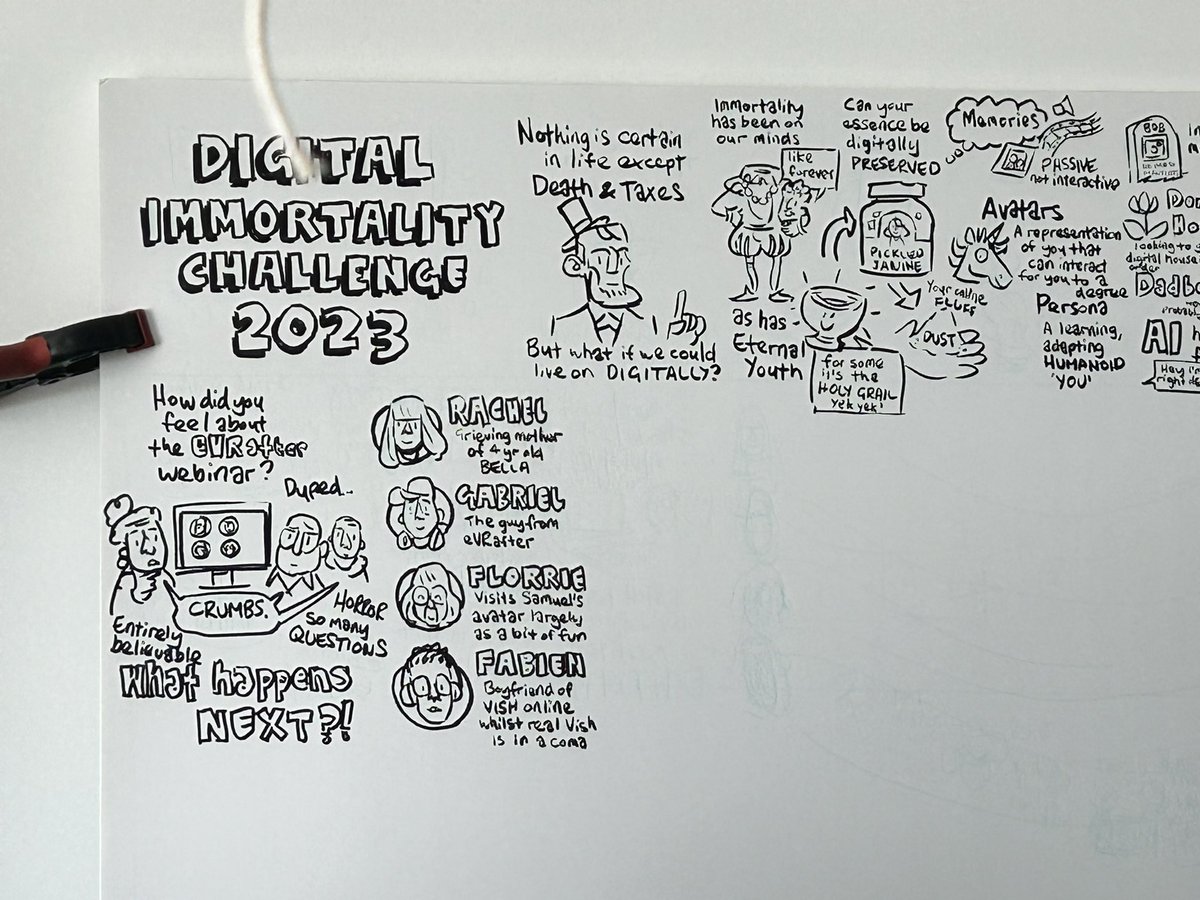 DIGITAL
IMMORTALITY
CHALLENGE
2023
Nothing is certain
in life except
Death & Taxes
But what if we could
live on DIGITALLY?
Immortality
has been on
our minds
like
forever
as has
Eternal
Youth
for some
it's the
HOLY GRAIL
Yek yek'
Can your
essence be
digitally
PRESERVED
PICKLED
JANINE
DUST
Memories
PASSIVE
not interactive
Avatars
A representation
of you that
can interact
for you to a
degree
Persona
A learning,
adapting
HUMANOID
'YOU'
BOB
looking to
digital house
order
AI
right
How did you
feel about
the EVRafter
webinar?
Duped..
CRUMBS.
Entirely
believable
HORROR
SO MANY
QUESTIONS
What happens
NEXT?!
RACHEL
Grieving mother
of 4 yr old
BELLA
GABRIEL
The guy from
eVRafter
FLORRIE
Visits Samuel's
avatar largely
as a bit of fun
FABIEN
Boyfriend of
VISH online
whilst real Vish
is in a coma